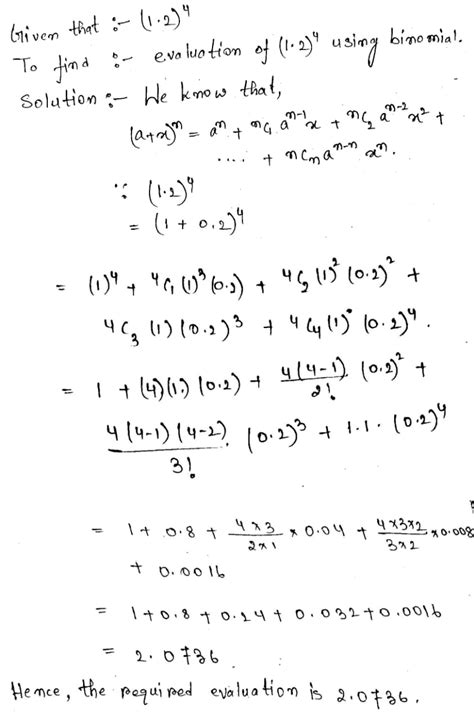 Given that :- (1.2)⁴
To find :- evaluation of (1.2)⁴ using binomial.
Solution :- We know that,
(a+x)ⁿ = aⁿ + ⁿC₁ aⁿ⁻¹x + ⁿC₂ aⁿ⁻²x² +
.... + ⁿCₙ aⁿ⁻ⁿ xⁿ.
∵ (1.2)⁴
= (1 + 0.2)⁴
= (1)⁴ + ⁴C₁ (1)³ (0.2) + ⁴C₂ (1)² (0.2)² +
⁴C₃ (1) (0.2)³ + ⁴C₄ (1)⁰ (0.2)⁴.
= 1 + (4)(1)(0.2) + 4(4-1)/2! (0.2)² +
4(4-1)(4-2)/3! . (0.2)³ + 1.1. (0.2)⁴
= 1 + 0.8 + 4×3/2×1 × 0.04 + 4×3×2/3×2 × 0.008
+ 0.0016
= 1+0.8 + 0.24 + 0.032+0.0016
= 2.0736.
Hence, the required evaluation is 2.0736.